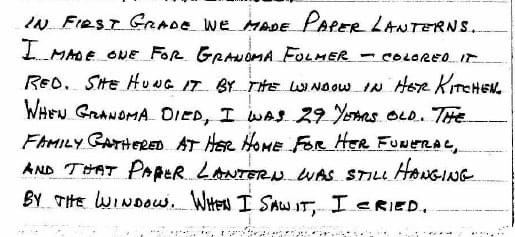 IN FIRST GRADE WE MADE PAPER LANTERNS.
I MADE ONE FOR GRANDMA FULMER — COLORED IT
RED. SHE HUNG IT BY THE WINDOW IN HER KITCHEN.
WHEN GRANDMA DIED, I WAS 29 YEARS OLD. THE
FAMILY GATHERED AT HER HOME FOR HER FUNERAL,
AND THAT PAPER LANTERN WAS STILL HANGING
BY THE WINDOW. WHEN I SAW IT, I CRIED.